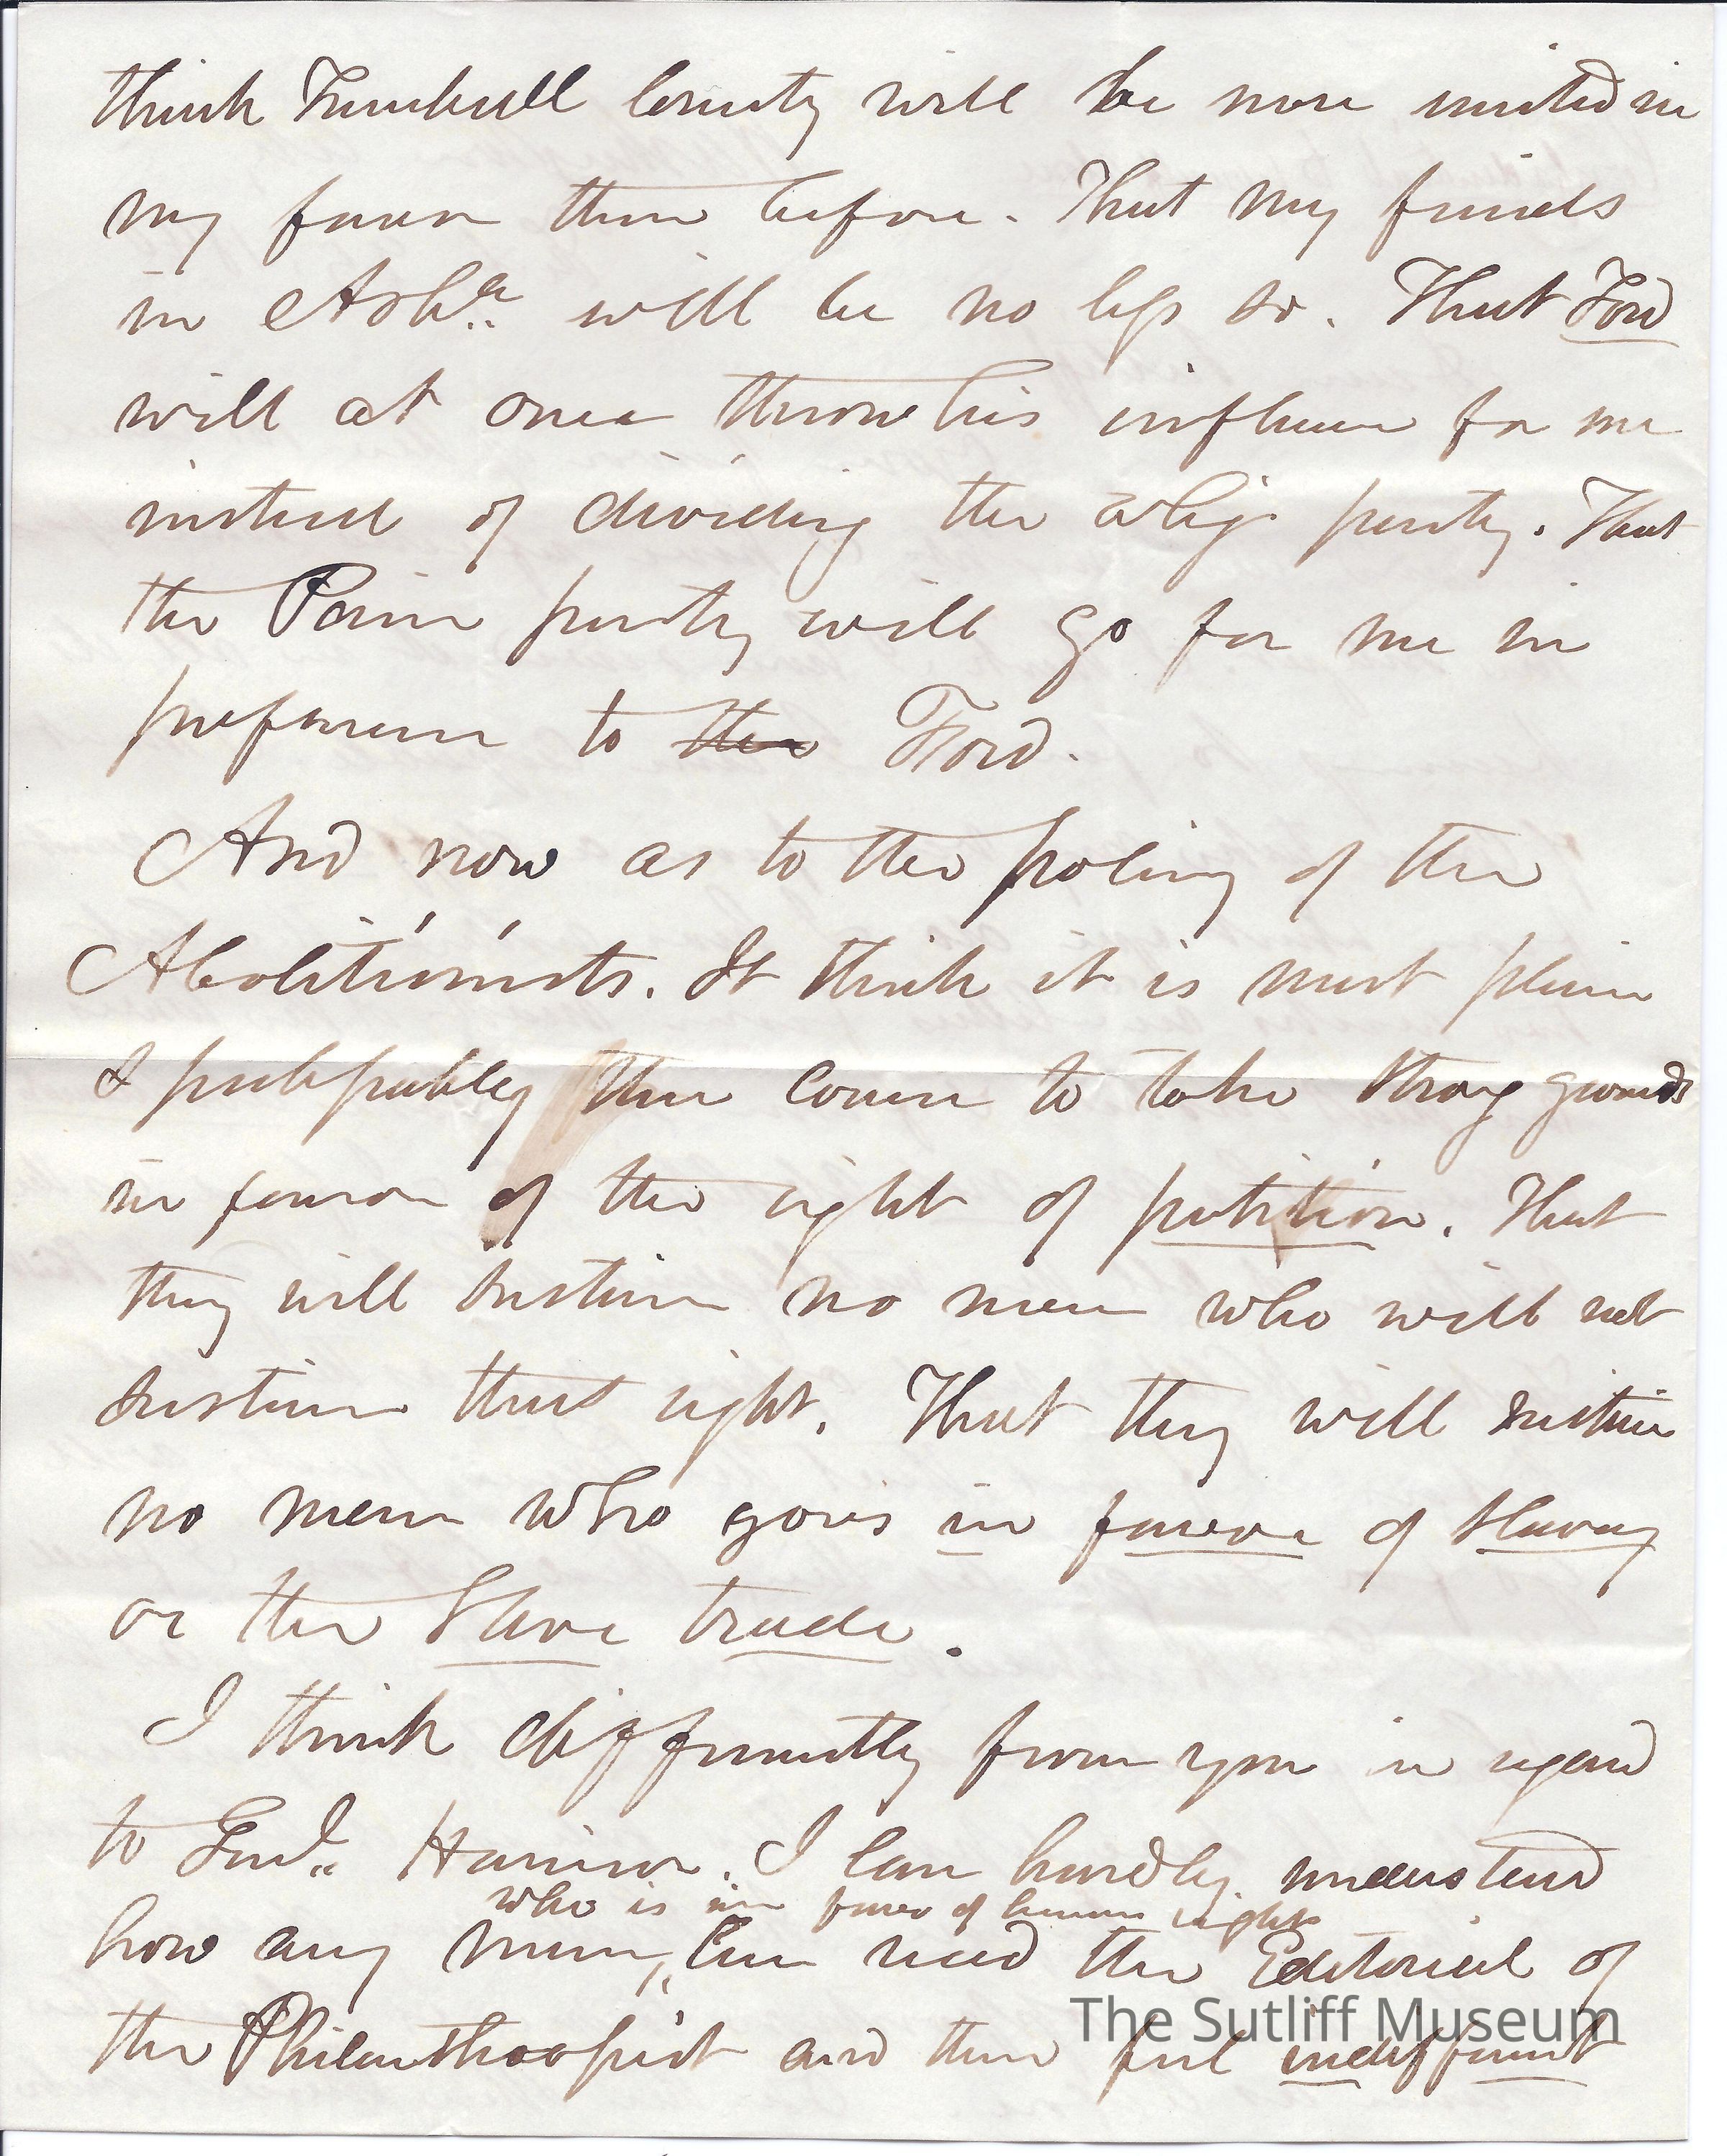 think Trumbull County will be more united in
my favor than before. That my friends
in Ashᵃ will be no less so. That Ford
will at once throw his influence for me
instead of dividing the whig party. That
the Pain party will go for me in
preference to the Ford.
And now as to the policy of the
Abolitionists. It think it is most plain
& palpably their course to take strong grounds
in favour of the right of petition. That
they will sustain no man who will not
sustain that right. That they will sustain
no man who goes in favor of Slavery
or the Slave trade.
I think differently from you in regard
to Genˡ Harrison. I can hardly understand
who is in favor of human rights
how any man, can read the Editorial of
the Philanthropist and then feel indifferent
The Sutliff Museum